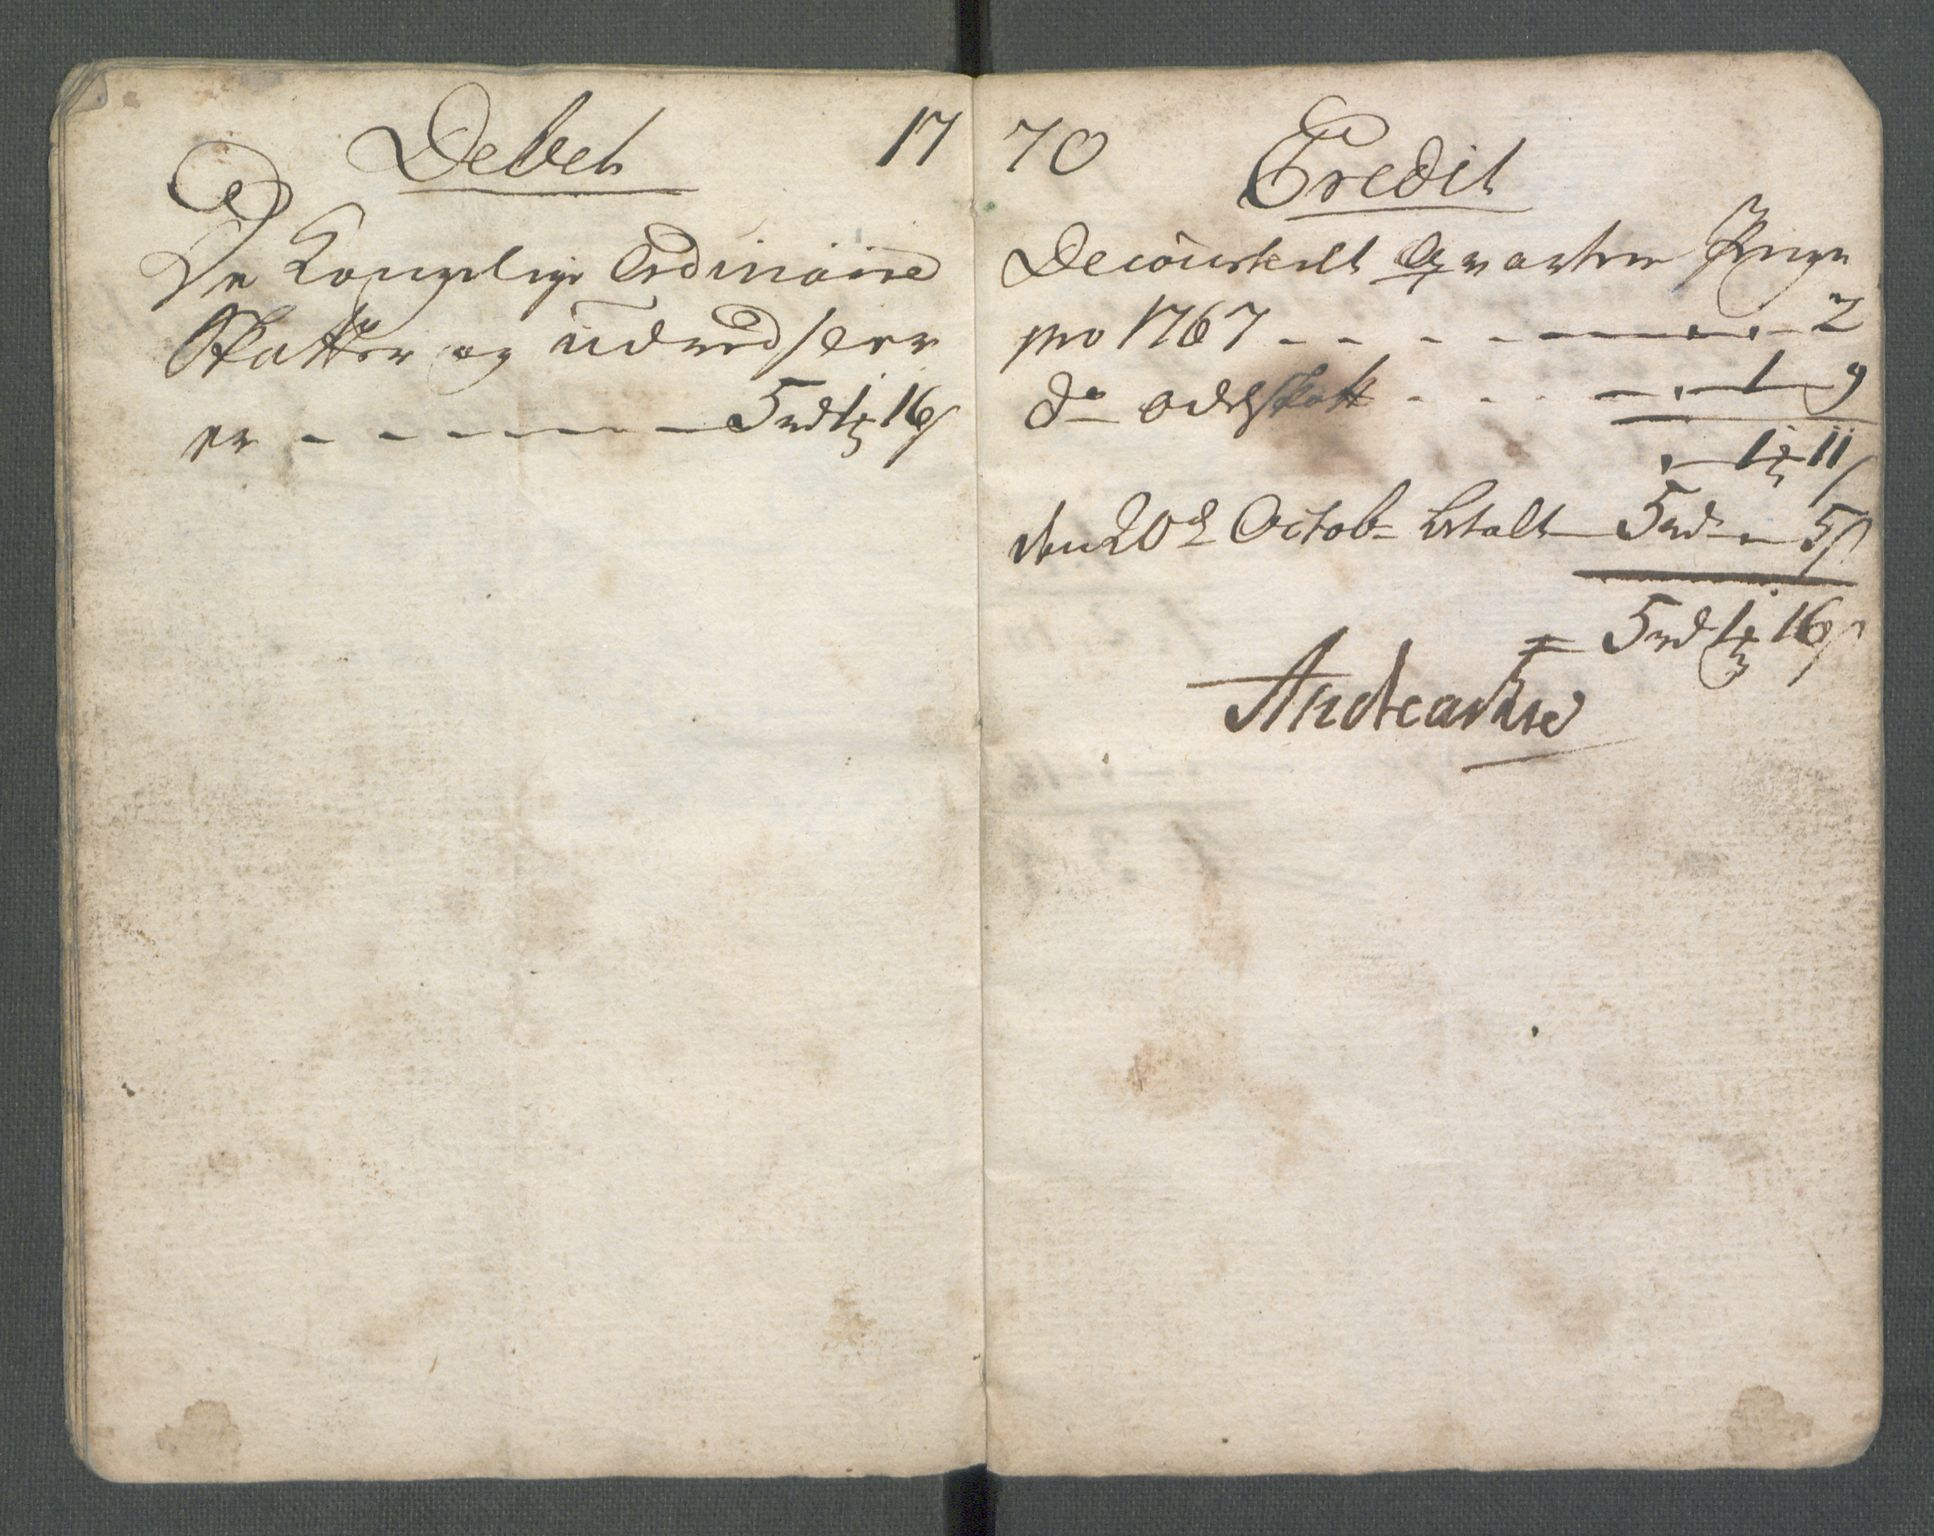 Debet 17
De Kongelige Ordinaire
Skatter og udredseer
er - - - - - - - 5 rd 1 ₰ 16 s
70 Credit
Decourtert Qvarteer Penge
pro 1767 - - - - - - - - 2
do odelskatt - - - - . - 1 - 9
. - 1 ₰ 11 s
den 20de Octobr betalt - 5 rd - 5 s
5 rd 1 ₰ 16 s